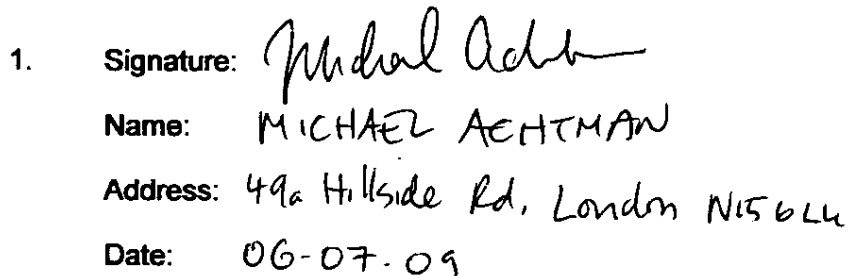 1. Signature: Michael Achtman
Name: MICHAEL ACHTMAN
Address: 49a Hillside Rd, London N15 6LU
Date: 06-07.09